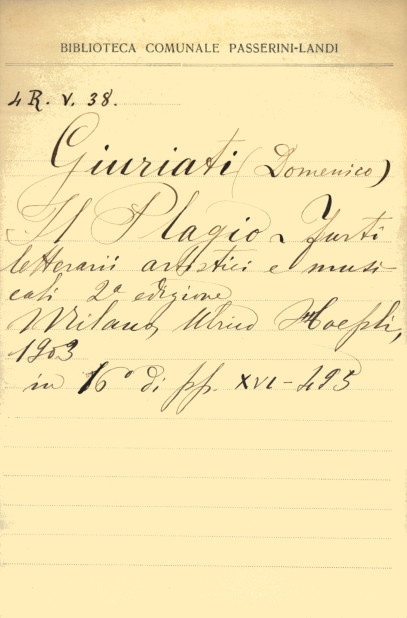 BIBLIOTECA COMUNALE PASSERINI-LANDI
4 R. V. 38.
Giuriati (Domenico)
Il Plagio - Furti
letterarii artistici e musi-
cali 2ª edizione
Milano, Ulrico Hoepli,
1903
in 16º di pp. XVI-493